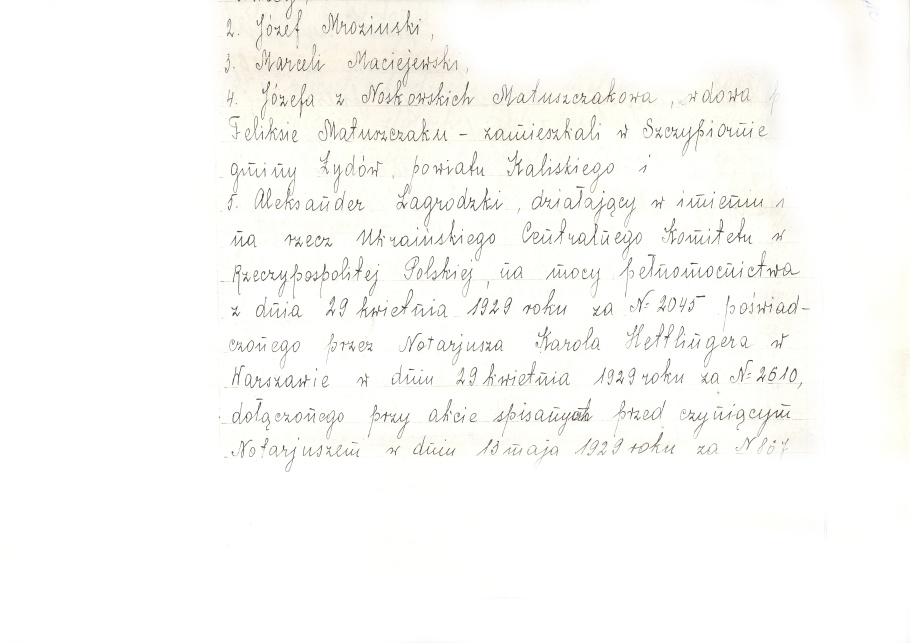 2. Józef Mroziński,
3. Marceli Maciejewski,
4. Józefa z Noskowskich Matuszczakowa, wdowa
Feliksie Matuszczaku – zamieszkali w Szczypiornie
gminy Żydów, powiatu Kaliskiego i
5. Aleksander Zagrodzki, działający w imieniu i
na rzecz Ukraińskiego Centralnego Komitetu w
Rzeczypospolitej Polskiej, na mocy pełnomocnictwa
z dnia 29 kwietnia 1929 roku za № 2045 poświad-
czonego przez Notarjusza Karola Hettlingera w
Warszawie w dniu 29 kwietnia 1929 roku za № 2610,
dołączonego przy akcie spisanych przed czyniącym
Notarjuszem w dniu 13 maja 1929 roku za N 867